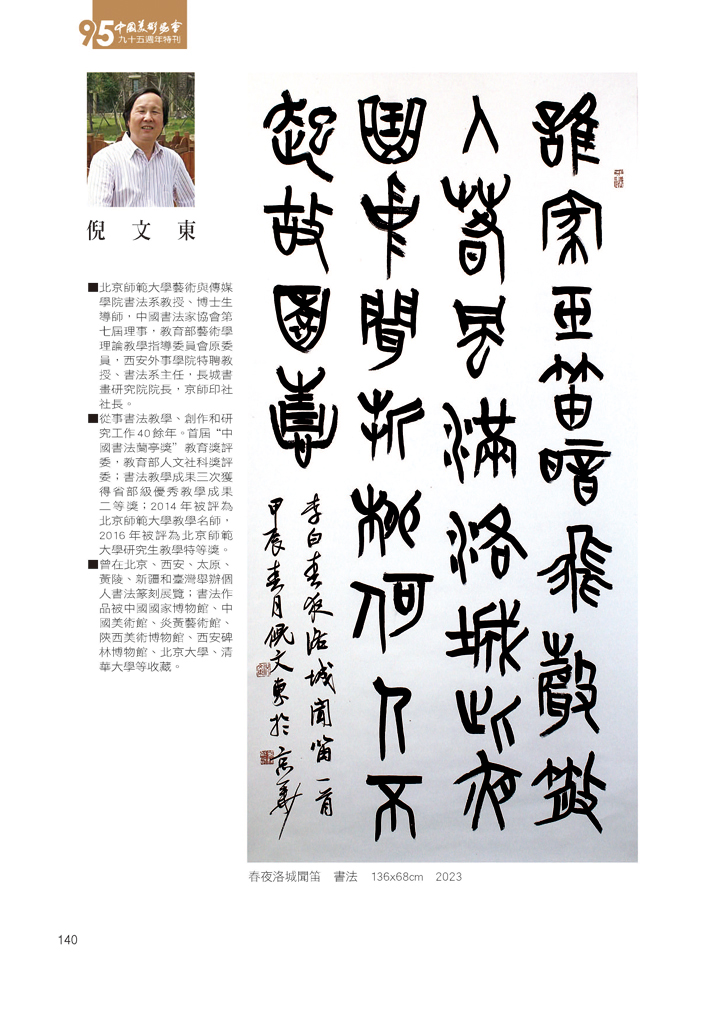 95 中國美術協會
九十五週年特刊
倪文東
■北京師範大學藝術與傳媒
學院書法系教授、博士生
導師，中國書法家協會第
七屆理事，教育部藝術學
理論教學指導委員會原委
員，西安外事學院特聘教
授、書法系主任，長城書
畫研究院院長，京師印社
社長。
■從事書法教學、創作和研
究工作40餘年。首屆“中
國書法蘭亭獎”教育獎評
委，教育部人文社科獎評
委；書法教學成果三次獲
得省部級優秀教學成果
二等獎；2014年被評為
北京師範大學教學名師，
2016年被評為北京師範
大學研究生教學特等獎。
■曾在北京、西安、太原、
黃陵、新疆和臺灣舉辦個
人書法篆刻展覽；書法作
品被中國國家博物館、中
國美術館、炎黃藝術館、
陝西美術博物館、西安碑
林博物館、北京大學、清
華大學等收藏。
誰家玉笛暗飛聲散
入春風滿洛城此夜
曲中聞折柳何人不
起故園情
李白春夜洛城聞笛一首
甲辰春月倪文東於京華
春夜洛城聞笛　書法　136x68cm　2023
140